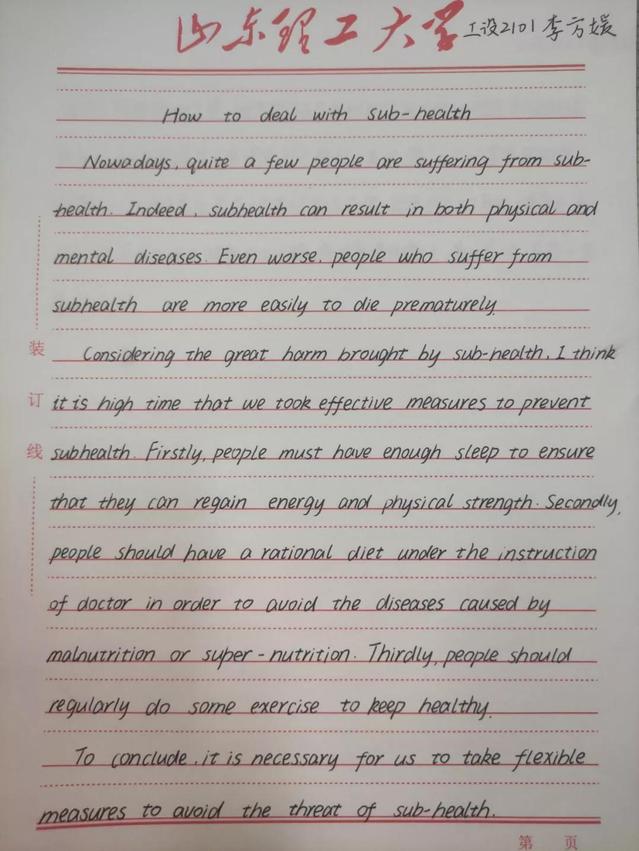 山东理工大学 工设2101 李方媛
How to deal with sub-health
Nowadays, quite a few people are suffering from sub-
health. Indeed, subhealth can result in both physical and
mental diseases. Even worse, people who suffer from
subhealth are more easily to die prematurely.
装 Considering the great harm brought by sub-health, I think
订 it is high time that we took effective measures to prevent
线 subhealth. Firstly, people must have enough sleep to ensure
that they can regain energy and physical strength. Secondly,
people should have a rational diet under the instruction
of doctor in order to avoid the diseases caused by
malnutrition or super-nutrition. Thirdly, people should
regularly do some exercise to keep healthy.
To conclude, it is necessary for us to take flexible
measures to avoid the threat of sub-health.
第 页